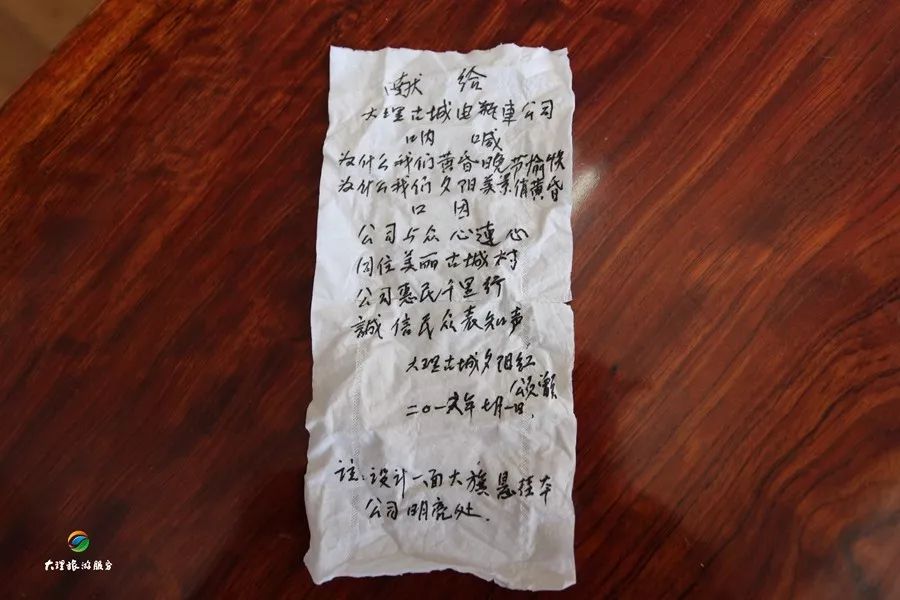 献给
大理古城电瓶車公司
呐喊
为什么我们黄昏晚节愉快
为什么我们夕阳美景俏黄昏
口因
公司与众心連心
同住美丽古城村
公司惠民千里行
誠信民众表知声
大理古城夕阳红
颂
二〇一六年七月一日.
註:设计一面大旗悬挂本
公司明亮处.
大理旅游服务